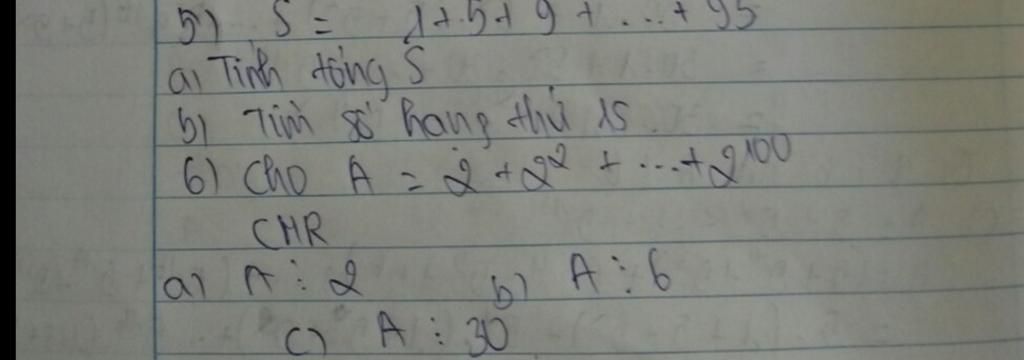 5) S = 1+5+9+...+95
a) Tính tổng S
b) Tìm số hạng thứ 15
6) Cho A = 2 + 2² + ... + 2¹⁰⁰
CMR
a) A ⋮ 2 b) A ⋮ 6
c) A ⋮ 30